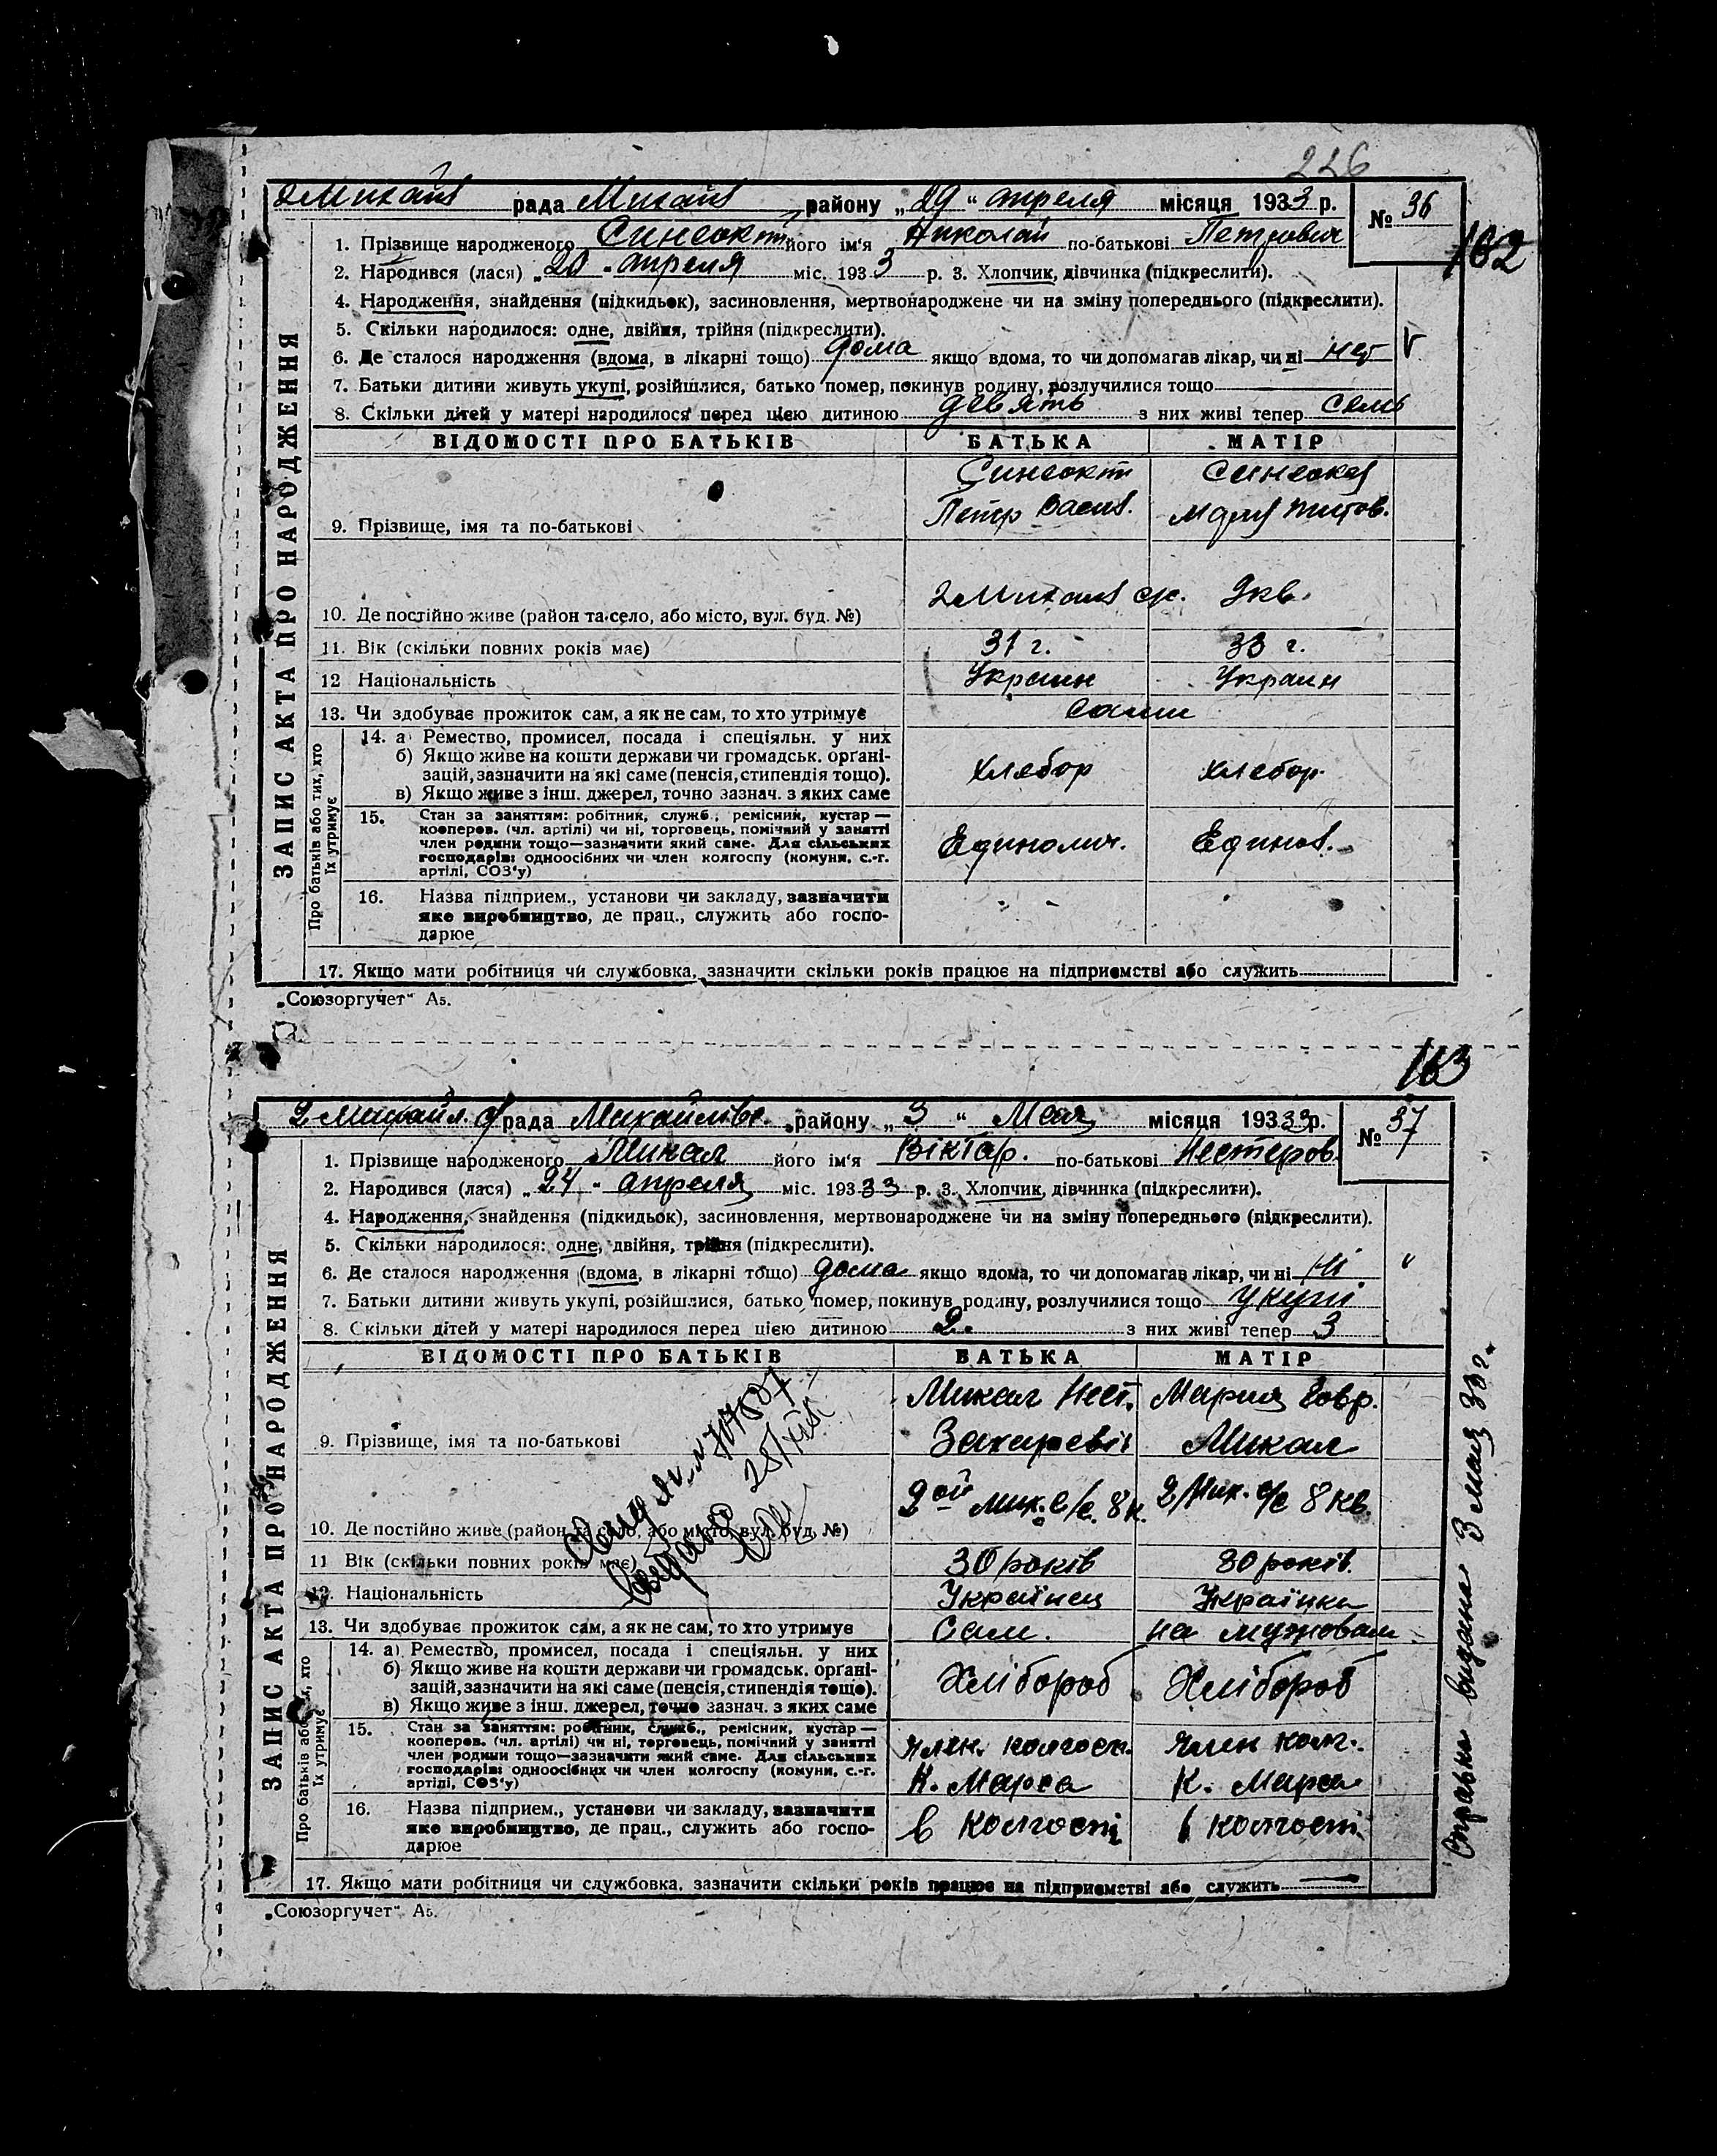 226
2 Михайл рада Михайл району „29“ апреля місяця 1933 р. № 36
162
1. Прізвище народженого Синеокий його ім‘я Николай по-батькові Петрович
2. Народився (лася) „20„ апреля міс. 1933 р. 3. Хлопчик, дівчинка (підкреслити).
4. Народження, знайдення (підкидьок), засиновлення, мертвонароджене чи на зміну попереднього (підкреслити).
5. Скільки народилося: одне, двійня, трійня (підкреслити).
6. Де сталося народження (вдома, в лікарні тощо) дома якщо вдома, то чи допомагав лікар, чи ні нет
7. Батьки дитини живуть укупі, розійшлися, батько помер, покинув родину, розлучилися тощо
8. Скільки дітей у матері народилося перед цією дитиною девять з них живі тепер семь
ЗАПИС АКТА ПРО НАРОДЖЕННЯ
ВІДОМОСТІ ПРО БАТЬКІВ БАТЬКА МАТІР
Синеокий Синеокая
9. Прізвище, імя та по-батькові Петр Васил. Мария Титов.
10. Де постійно живе (район та село, або місто, вул. буд. №) 2 Михайл с/с. 9 кв.
11. Вік (скільки повних років має) 31 г. 33 г.
12 Національність Украин Украин
13. Чи здобуває прожиток сам, а як не сам, то хто утримує Сами
Про батьків або тих, хто їх утримує
14. а) Ремество, промисел, посада і спеціяльн. у них
б) Якщо живе на кошти держави чи громадськ. органі-
зацій, зазначити на які саме (пенсія, стипендія тощо). Хлебор Хлебор.
в) Якщо живе з інш. джерел, точно зазнач. з яких саме
15. Стан за заняттям: робітник, служб., ремісник, кустар —
кооперов. (чл. артілі) чи ні, торговець, помічний у занятті
член родини тощо—зазначити який саме. Для сільських Единолич. Единол.
господарів: одноосібних чи член колгоспу (комуни, с.-г.
артілі, СОЗ‘у)
16. Назва підприєм., установи чи закладу, зазначити
яке виробництво, де прац., служить або госпо-
дарює
17. Якщо мати робітниця чи службовка, зазначити скільки років працює на підприємстві або служить
„Союзоргучет“ А5.
163
2 Михайл. с/ рада Михайлівс. району „3“ Мая місяця 19333 р. № 37
1. Прізвище народженого Микал його ім‘я Віктар. по-батькові Нестеров.
2. Народився (лася) „24„ апреля міс. 19333 р. 3. Хлопчик, дівчинка (підкреслити).
4. Народження, знайдення (підкидьок), засиновлення, мертвонароджене чи на зміну попереднього (підкреслити).
5. Скільки народилося: одне, двійня, трійня (підкреслити).
6. Де сталося народження (вдома, в лікарні тощо) дома якщо вдома, то чи допомагав лікар, чи ні ні
7. Батьки дитини живуть укупі, розійшлися, батько помер, покинув родину, розлучилися тощо укупі
8. Скільки дітей у матері народилося перед цією дитиною 2. з них живі тепер 3
ЗАПИС АКТА ПРО НАРОДЖЕННЯ
ВІДОМОСТІ ПРО БАТЬКІВ БАТЬКА МАТІР
Микал Нест. Мария Говр.
9. Прізвище, імя та по-батькові Захаревіч Микал
2ой Мих. с/с. 8 к. 2 Мих. с/с 8 кв.
10. Де постійно живе (район та село, або місто, вул. буд. №)
11 Вік (скільки повних років має) 30 років 30 років.
12. Національність Українец Українка
13. Чи здобуває прожиток сам, а як не сам, то хто утримує Сам. на мужовам
Про батьків або тих, хто їх утримує
14. а) Ремество, промисел, посада і спеціяльн. у них
б) Якщо живе на кошти держави чи громадськ. органі-
зацій, зазначити на які саме (пенсія, стипендія тощо). Хлібороб Хлібороб
в) Якщо живе з інш. джерел, точно зазнач. з яких саме
15. Стан за заняттям: робітник, служб., ремісник, кустар —
кооперов. (чл. артілі) чи ні, торговець, помічний у занятті Член. колгосп. Член колг.
член родини тощо—зазначити який саме. Для сільських
господарів: одноосібних чи член колгоспу (комуни, с.-г. К. Маркса К. Маркса
артілі, СОЗ‘у)
16. Назва підприєм., установи чи закладу, зазначити
яке виробництво, де прац., служить або госпо- в колгоспі в колгоспі
дарює
17. Якщо мати робітниця чи службовка, зазначити скільки років працює на підприємстві або служить —
„Союзоргучет“ А5.
Справка видана 3 мая 33 г.